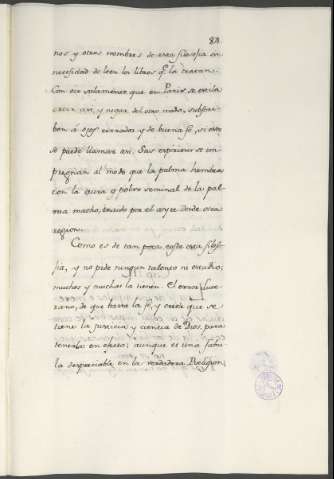 82
nos y otros nombres de esta filosofia sin
necesidad de leer los libros q.e la tratan.
Con oir solamente que en Paris se va la
creer asi, y negar del otro modo, subscri-
ben á ojos cerrados y de buena fe, si esta
se puede llamar asi. Sus espiritus se im-
pregnan al modo que la palma hembra
con la aura y polvo seminal de la pal-
ma macho, traido por el ayre desde otra
region.
Como es de tan poca costa esta filoso-
fia, y no pide ningun talento ni estudio,
muchos y muchas la tienen. El error Lute-
rano, de que basta la fe, y creer que se
tiene la justicia y ciencia de Dios para
tenerla en efecto; aunque es una fabu-
la despreciable en la verdadera Religion,